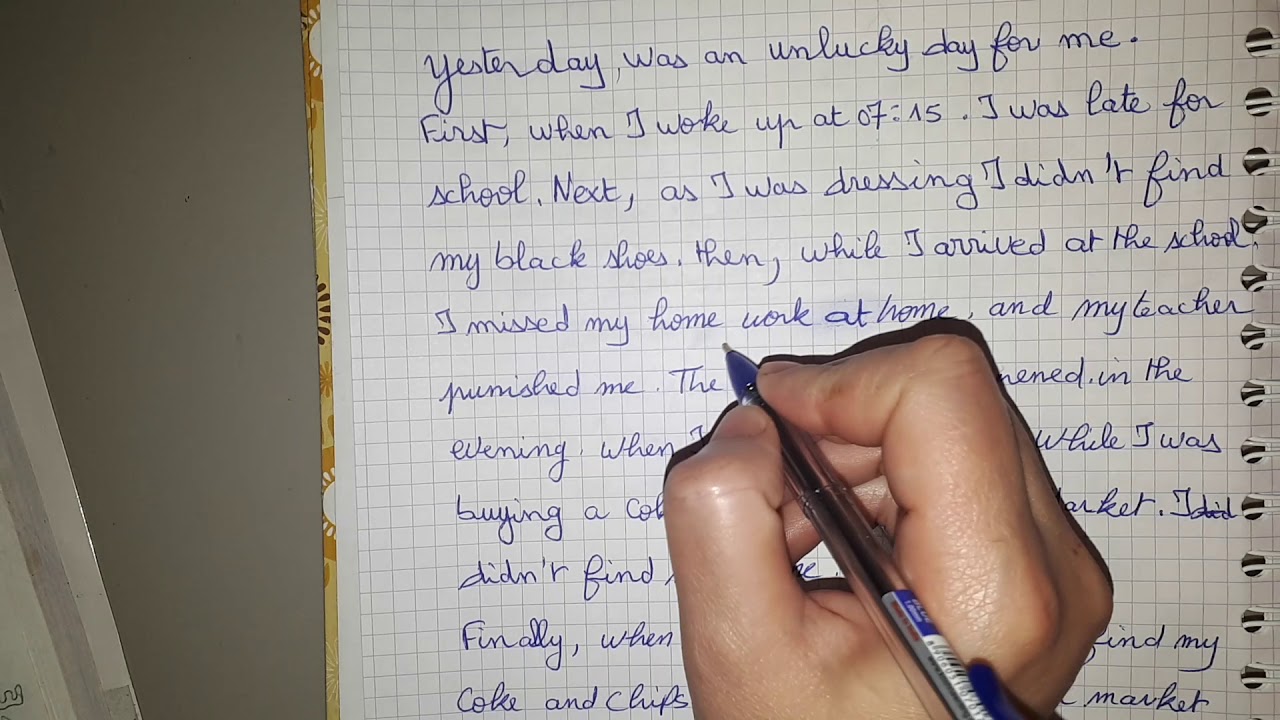 Yesterday, was an unlucky day for me.
First, when I woke up at 07:15. I was late for
school. Next, as I was dressing I didn't find
my black shoes. then, while I arrived at the school.
I missed my home work at home, and my teacher
punished me. The in the
evening. when I while I was
buying a I did
didn't find
Finally, when find my
Coke and chips market